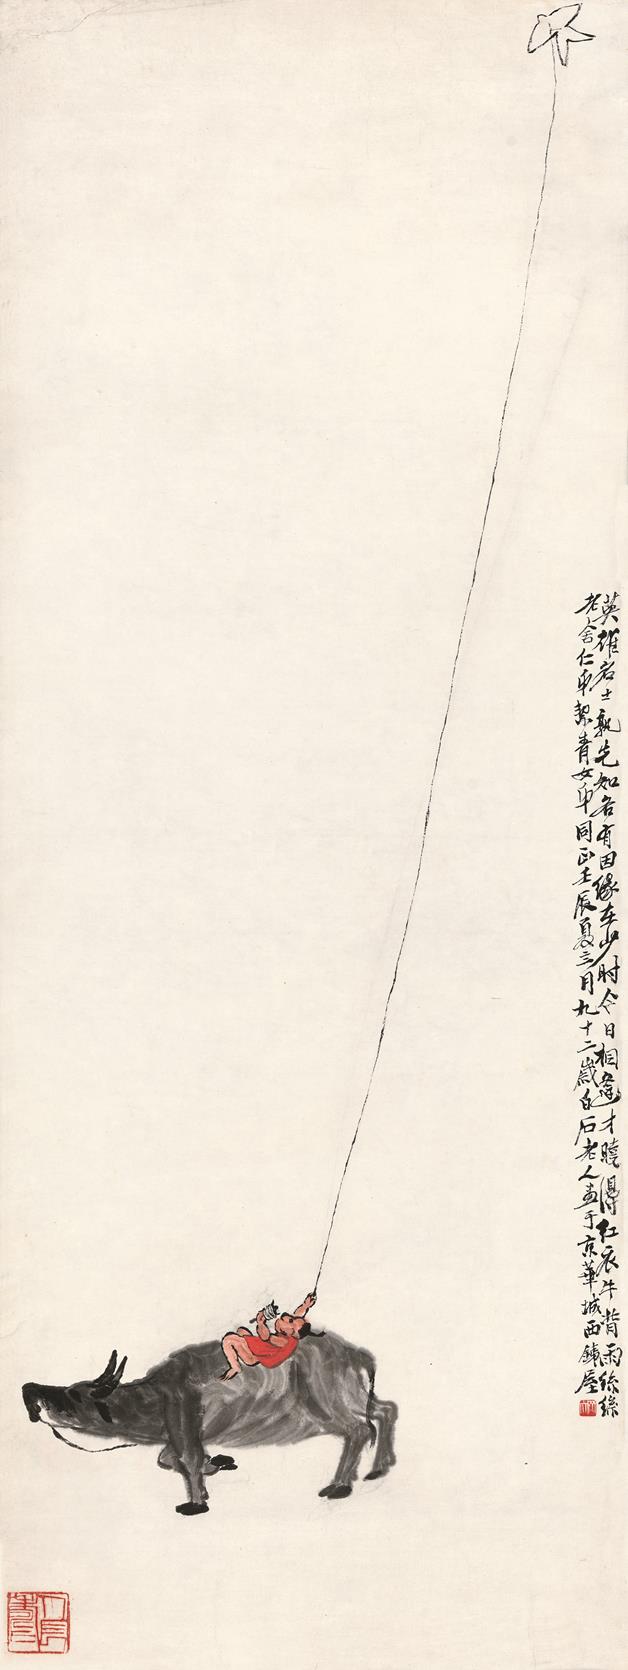 英雄名士孰先知各有因緣在少時今日相逢才曉得紅衣牛背雨絲絲
老舍仁弟絜青女弟同正壬辰夏三月九十二歲白石老人畫于京華城西鐵屋